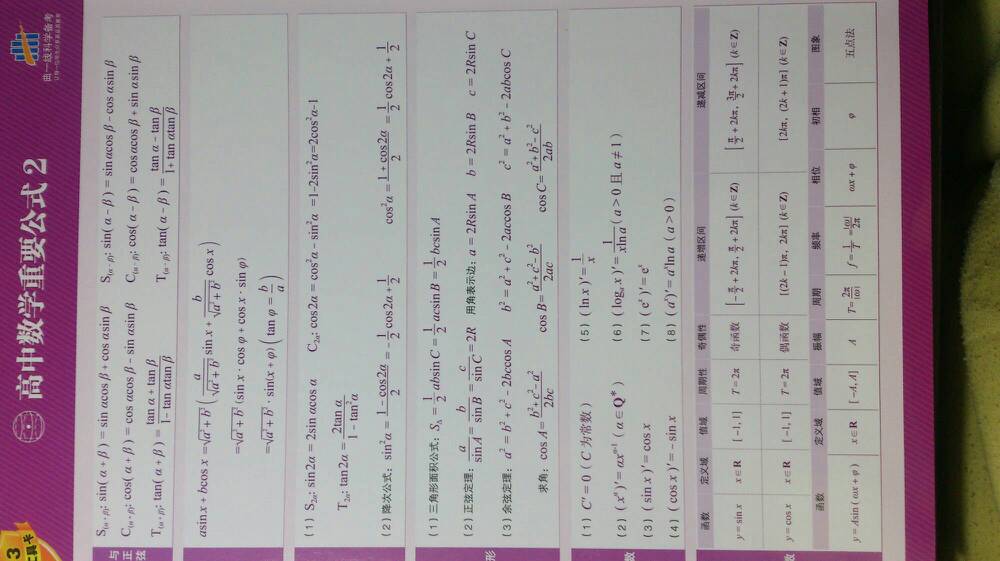 高中数学重要公式 2
曲一线科学备考
工具卡
与
正
弦
S(α+β): sin(α+β)=sinαcosβ+cosαsinβ S(α-β): sin(α-β)=sinαcosβ-cosαsinβ
C(α+β): cos(α+β)=cosαcosβ-sinαsinβ C(α-β): cos(α-β)=cosαcosβ+sinαsinβ
T(α+β): tan(α+β)=(tanα+tanβ)/(1-tanαtanβ) T(α-β): tan(α-β)=(tanα-tanβ)/(1+tanαtanβ)
asinx+bcosx=√(a²+b²)(a/√(a²+b²) sinx+b/√(a²+b²) cosx)
=√(a²+b²)(sinx·cosφ+cosx·sinφ)
=√(a²+b²)·sin(x+φ)(tanφ=b/a)
(1) S2α: sin2α=2sinαcosα C2α: cos2α=cos²α-sin²α=1-2sin²α=2cos²α-1
T2α: tan2α=2tanα/(1-tan²α)
(2) 降次公式: sin²α=(1-cos2α)/2=-1/2cos2α+1/2 cos²α=(1+cos2α)/2=1/2cos2α+1/2
形
(1) 三角形面积公式: S△=1/2absinC=1/2acsinB=1/2bcsinA
(2) 正弦定理: a/sinA=b/sinB=c/sinC=2R 用角表示边: a=2RsinA b=2RsinB c=2RsinC
(3) 余弦定理: a²=b²+c²-2bccosA b²=a²+c²-2accosB c²=a²+b²-2abcosC
求角: cosA=(b²+c²-a²)/2bc cosB=(a²+c²-b²)/2ac cosC=(a²+b²-c²)/2ab
数
(1) C′=0(C为常数) (5) (lnx)′=1/x
(2) (xᵅ)′=αxᵅ⁻¹(α∈Q*) (6) (logₐx)′=1/(xlna)(a>0且a≠1)
(3) (sinx)′=cosx (7) (eˣ)′=eˣ
(4) (cosx)′=-sinx (8) (aˣ)′=aˣlna(a>0)
数
函数 定义域 值域 周期性 奇偶性 递增区间 递减区间
y=sinx x∈R [-1,1] T=2π 奇函数 [-π/2+2kπ, π/2+2kπ](k∈Z) [π/2+2kπ, 3π/2+2kπ](k∈Z)
y=cosx x∈R [-1,1] T=2π 偶函数 [(2k-1)π, 2kπ](k∈Z) [2kπ, (2k+1)π](k∈Z)
函数 定义域 值域 振幅 周期 频率 相位 初相 图象
y=Asin(ωx+φ) x∈R [-A,A] A T=2π/|ω| f=1/T=|ω|/2π ωx+φ φ 五点法